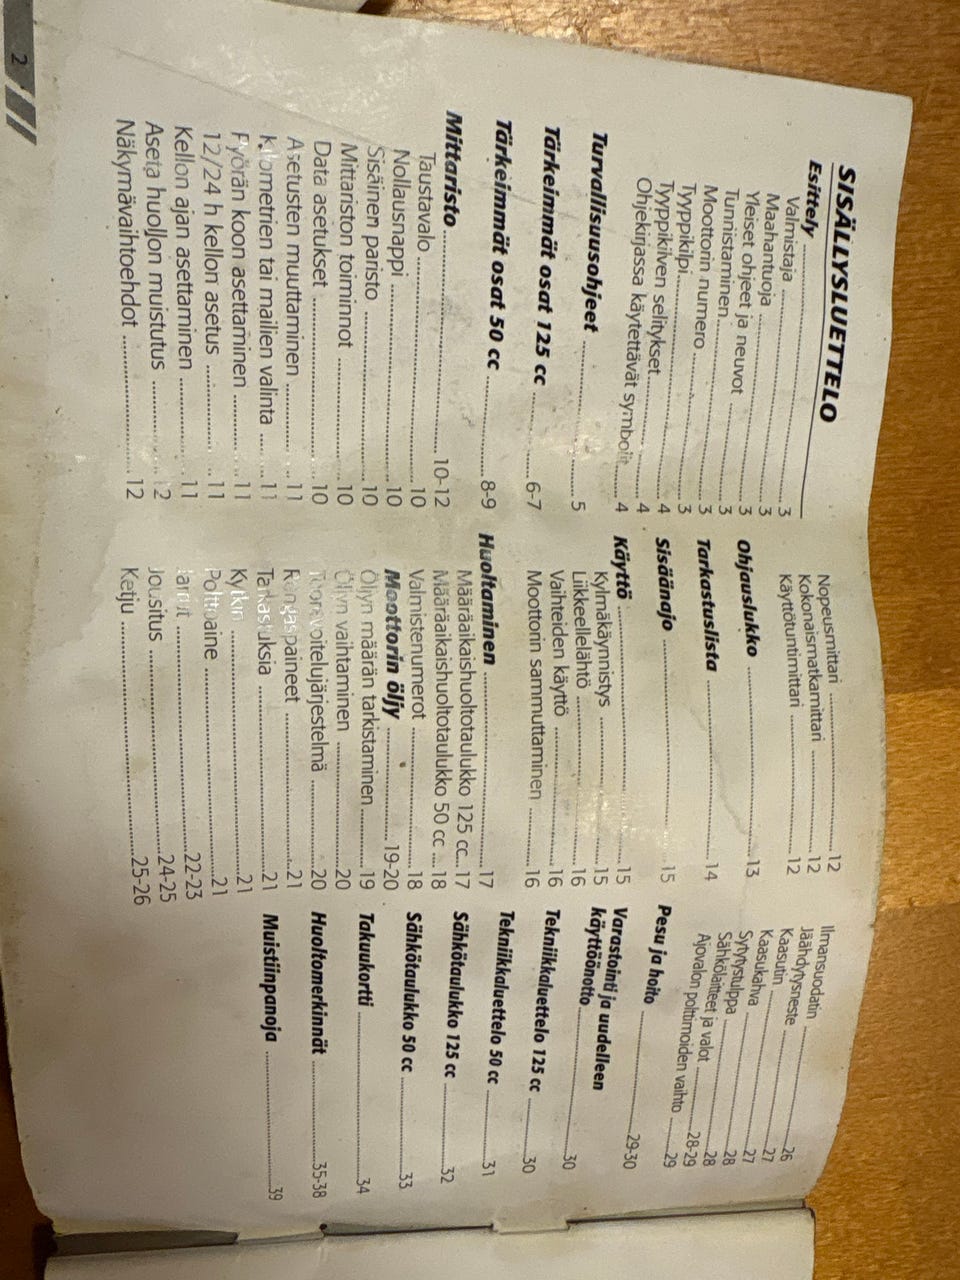 SISÄLLYSLUETTELO
Esittely ........ 3
Valmistaja ........ 3
Maahantuoja ........ 3
Yleiset ohjeet ja neuvot ........ 3
Tunnistaminen ........ 3
Moottorin numero ........ 3
Tyyppikilpi ........ 3
Tyyppikilven selitykset ........ 4
Ohjekirjassa käytettävät symbolit ........ 4
Turvallisuusohjeet ........ 5
Tärkeimmät osat 125 cc ........ 6-7
Tärkeimmät osat 50 cc ........ 8-9
Mittaristo ........ 10-12
Taustavalo ........ 10
Nollausnappi ........ 10
Sisäinen paristo ........ 10
Mittariston toiminnot ........ 10
Data asetukset ........ 10
Asetusten muuttaminen ........ 11
Kilometrien tai mailien valinta ........ 11
Pyörän koon asettaminen ........ 11
12/24 h kellon asetus ........ 11
Kellon ajan asettaminen ........ 11
Aseta huollon muistutus ........ 12
Näkymävaihtoehdot ........ 12
Nopeusmittari ........ 12
Kokonaismatkamittari ........ 12
Käyttötuntimittari ........ 12
Ohjauslukko ........ 13
Tarkastuslista ........ 14
Sisäänajo ........ 15
Käyttö ........ 15
Kylmäkäynnistys ........ 15
Liikkeellelähtö ........ 16
Vaihteiden käyttö ........ 16
Moottorin sammuttaminen ........ 16
Huoltaminen ........ 17
Määräaikaishuoltotaulukko 125 cc ... 17
Määräaikaishuoltotaulukko 50 cc .... 18
Valmistenumerot ........ 18
Moottorin öljy ........ 19-20
Öljyn määrän tarkistaminen ........ 19
Öljyn vaihtaminen ........ 20
Tuorevoitelujärjestelmä ........ 20
Rengaspaineet ........ 21
Tarkastuksia ........ 21
Kytkin ........ 21
Polttoaine ........ 21
Jarrut ........ 22-23
Jousitus ........ 24-25
Ketju ........ 25-26
Ilmansuodatin ........ 26
Jäähdytysneste ........ 26
Kaasutin ........ 27
Kaasukahva ........ 27
Sytytystulppa ........ 28
Sähkölaitteet ja valot ........ 28-29
Ajovalon polttimoiden vaihto ........ 29
Pesu ja hoito ........ 29-30
Varastointi ja uudelleen
käyttöönotto ........ 30
Tekniikkaluettelo 125 cc ........ 30
Tekniikkaluettelo 50 cc ........ 31
Sähkötaulukko 125 cc ........ 32
Sähkötaulukko 50 cc ........ 33
Takuukortti ........ 34
Huoltomerkinnät ........ 35-38
Muistiinpanoja ........ 39
2